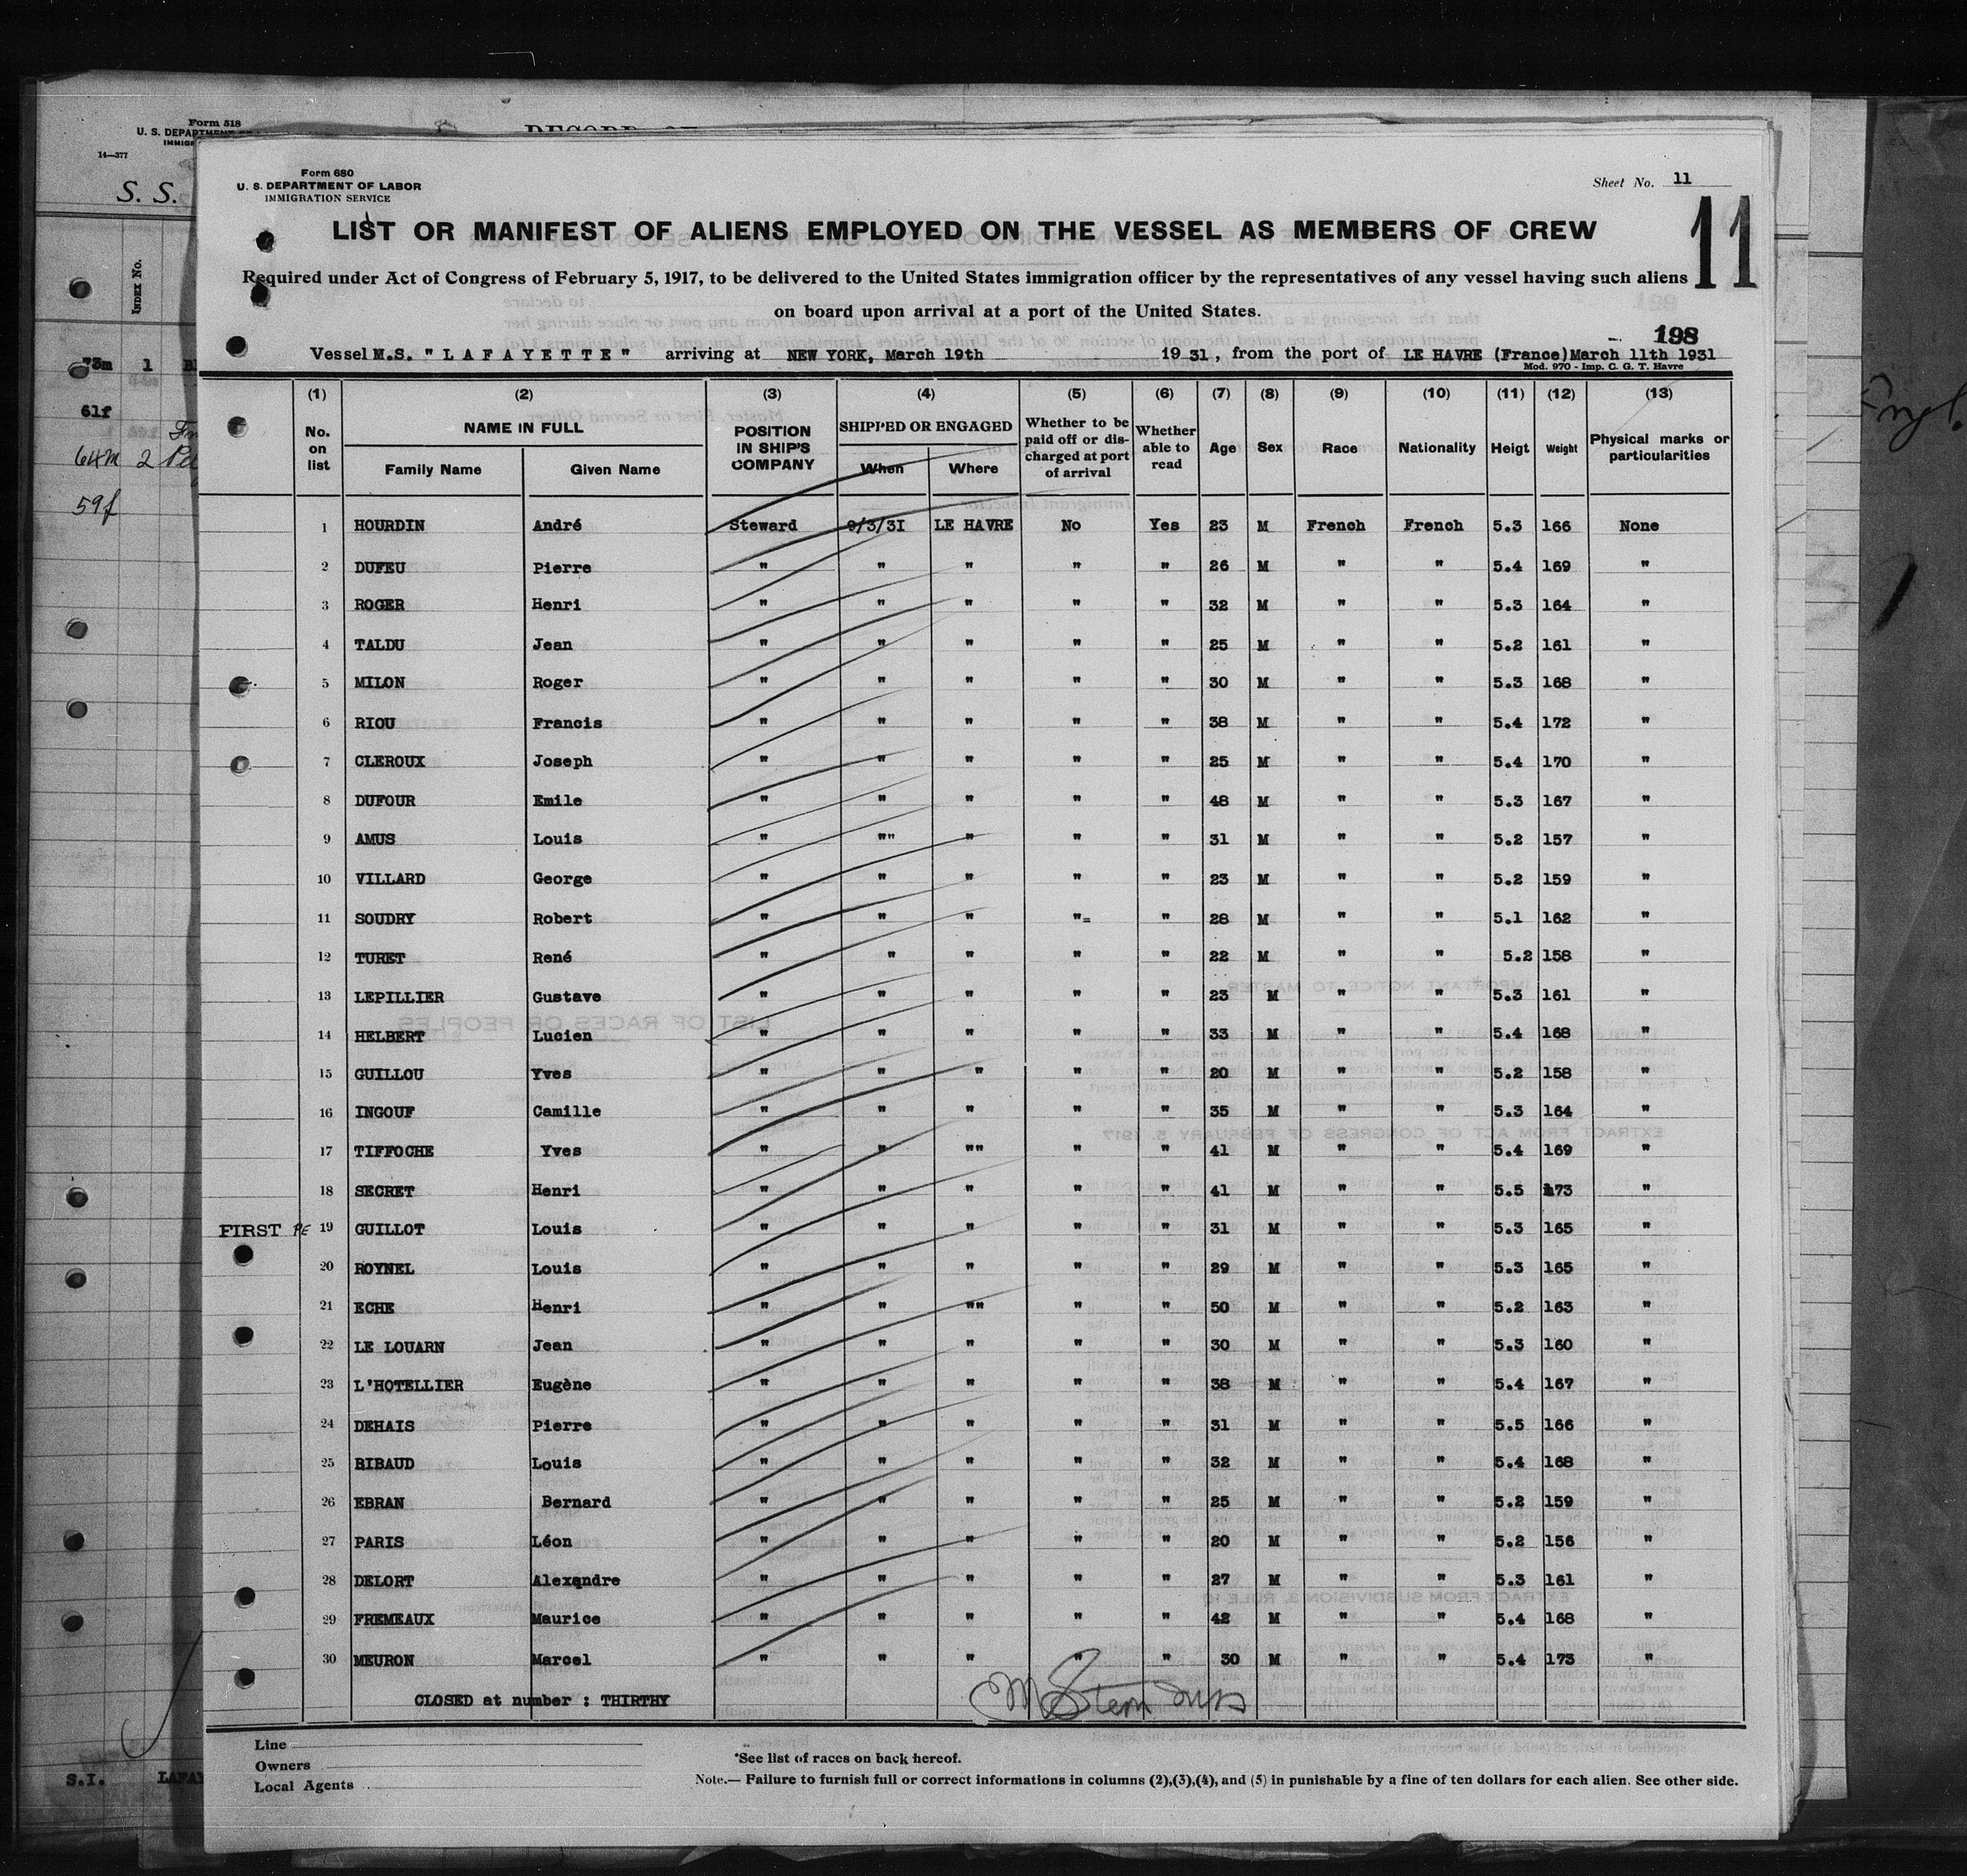 Form 518
U. S. DEPARTMENT
14—377
S. S.
INDEX No.
73m 1
61f
64m 2
59f
S.I. LAFAY
Form 680
U. S. DEPARTMENT OF LABOR
IMMIGRATION SERVICE
Sheet No. 11
11
LIST OR MANIFEST OF ALIENS EMPLOYED ON THE VESSEL AS MEMBERS OF CREW
Required under Act of Congress of February 5, 1917, to be delivered to the United States immigration officer by the representatives of any vessel having such aliens
on board upon arrival at a port of the United States.
198
Vessel M.S. "LAFAYETTE" arriving at NEW YORK, March 19th 19 31, from the port of LE HAVRE (France) March 11th 1931
Mod. 970 - Imp. C. G. T. Havre
(1) (2) (3) (4) (5) (6) (7) (8) (9) (10) (11) (12) (13)
No. on list NAME IN FULL Family Name Given Name POSITION IN SHIP'S COMPANY SHIPPED OR ENGAGED When Where Whether to be paid off or discharged at port of arrival Whether able to read Age Sex Race Nationality Heigt Weight Physical marks or particularities
1 HOURDIN André Steward 9/3/31 LE HAVRE No Yes 23 M French French 5.3 166 None
2 DUFEU Pierre " " " " " 26 M " " 5.4 169 "
3 ROGER Henri " " " " " 32 M " " 5.3 164 "
4 TALDU Jean " " " " " 25 M " " 5.2 161 "
5 MILON Roger " " " " " 30 M " " 5.3 168 "
6 RIOU Francis " " " " " 38 M " " 5.4 172 "
7 CLEROUX Joseph " " " " " 25 M " " 5.4 170 "
8 DUFOUR Emile " " " " " 48 M " " 5.3 167 "
9 AMUS Louis " "" " " " 31 M " " 5.2 157 "
10 VILLARD George " " " " " 23 M " " 5.2 159 "
11 SOUDRY Robert " " " "= " 28 M " " 5.1 162 "
12 TURET René " " " " " 22 M " " 5.2 158 "
13 LEPILLIER Gustave " " " " " 23 M " " 5.3 161 "
14 HELBERT Lucien " " " " " 33 M " " 5.4 168 "
15 GUILLOU Yves " " " " " 20 M " " 5.2 158 "
16 INGOUF Camille " " " " " 35 M " " 5.3 164 "
17 TIFFOCHE Yves " " "" " " 41 M " " 5.4 169 "
18 SECRET Henri " " " " " 41 M " " 5.5 173 "
FIRST PE 19 GUILLOT Louis " " " " " 31 M " " 5.3 165 "
20 ROYNEL Louis " " " " " 29 M " " 5.3 165 "
21 ECHE Henri " " "" " " 50 M " " 5.2 163 "
22 LE LOUARN Jean " " " " " 30 M " " 5.3 160 "
23 L'HOTELLIER Eugène " " " " " 38 M " " 5.4 167 "
24 DEHAIS Pierre " " " " " 31 M " " 5.5 166 "
25 RIBAUD Louis " " " " " 32 M " " 5.4 168 "
26 EBRAN Bernard " " " " " 25 M " " 5.2 159 "
27 PARIS Léon " " " " " 20 M " " 5.2 156 "
28 DELORT Alexandre " " " " " 27 M " " 5.3 161 "
29 FREMEAUX Maurice " " " " " 42 M " " 5.4 168 "
30 MEURON Marcel " " " " " 30 M " " 5.4 173 "
CLOSED at number : THIRTHY
Line
Owners
Local Agents
*See list of races on back hereof.
Note.— Failure to furnish full or correct informations in columns (2),(3),(4), and (5) in punishable by a fine of ten dollars for each alien. See other side.